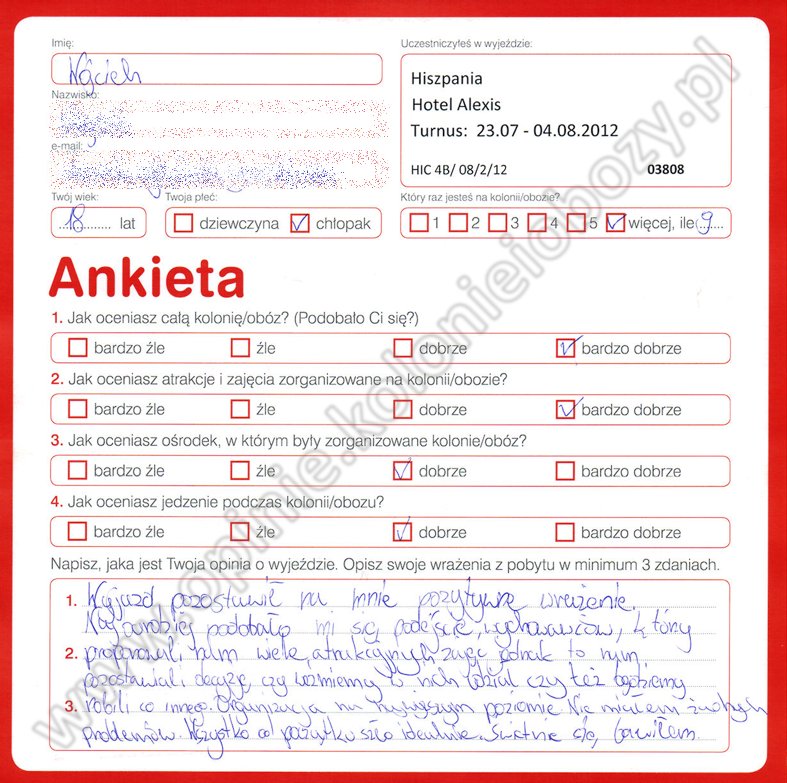 Imię:
Wojciech
Nazwisko:
e-mail:
Twój wiek:
18 lat
Twoja płeć:
dziewczyna chłopak
Uczestniczyłeś w wyjeździe:
Hiszpania
Hotel Alexis
Turnus: 23.07 - 04.08.2012
HIC 4B/ 08/2/12 03808
Który raz jesteś na kolonii/obozie?
1 2 3 4 5 więcej, ile 9
Ankieta
1. Jak oceniasz całą kolonię/obóz? (Podobało Ci się?)
bardzo źle źle dobrze bardzo dobrze
2. Jak oceniasz atrakcje i zajęcia zorganizowane na kolonii/obozie?
bardzo źle źle dobrze bardzo dobrze
3. Jak oceniasz ośrodek, w którym były zorganizowane kolonie/obóz?
bardzo źle źle dobrze bardzo dobrze
4. Jak oceniasz jedzenie podczas kolonii/obozu?
bardzo źle źle dobrze bardzo dobrze
Napisz, jaka jest Twoja opinia o wyjeździe. Opisz swoje wrażenia z pobytu w minimum 3 zdaniach.
1. Wyjazd pozostawił na mnie pozytywne wrażenie.
Najbardziej podobało mi się podejście wychowawców, który
2. proponowali nam wiele atrakcyjnych zajęć jednak to nam
pozostawiali decyzję, czy weźmiemy w nich udział czy też będziemy
3. robili co innego. Organizacja na najwyższym poziomie. Nie miałem żadnych
problemów. Wszystko od początku szło idealnie. Świetnie się bawiłem.
www.opinie.kolonieiobozy.pl